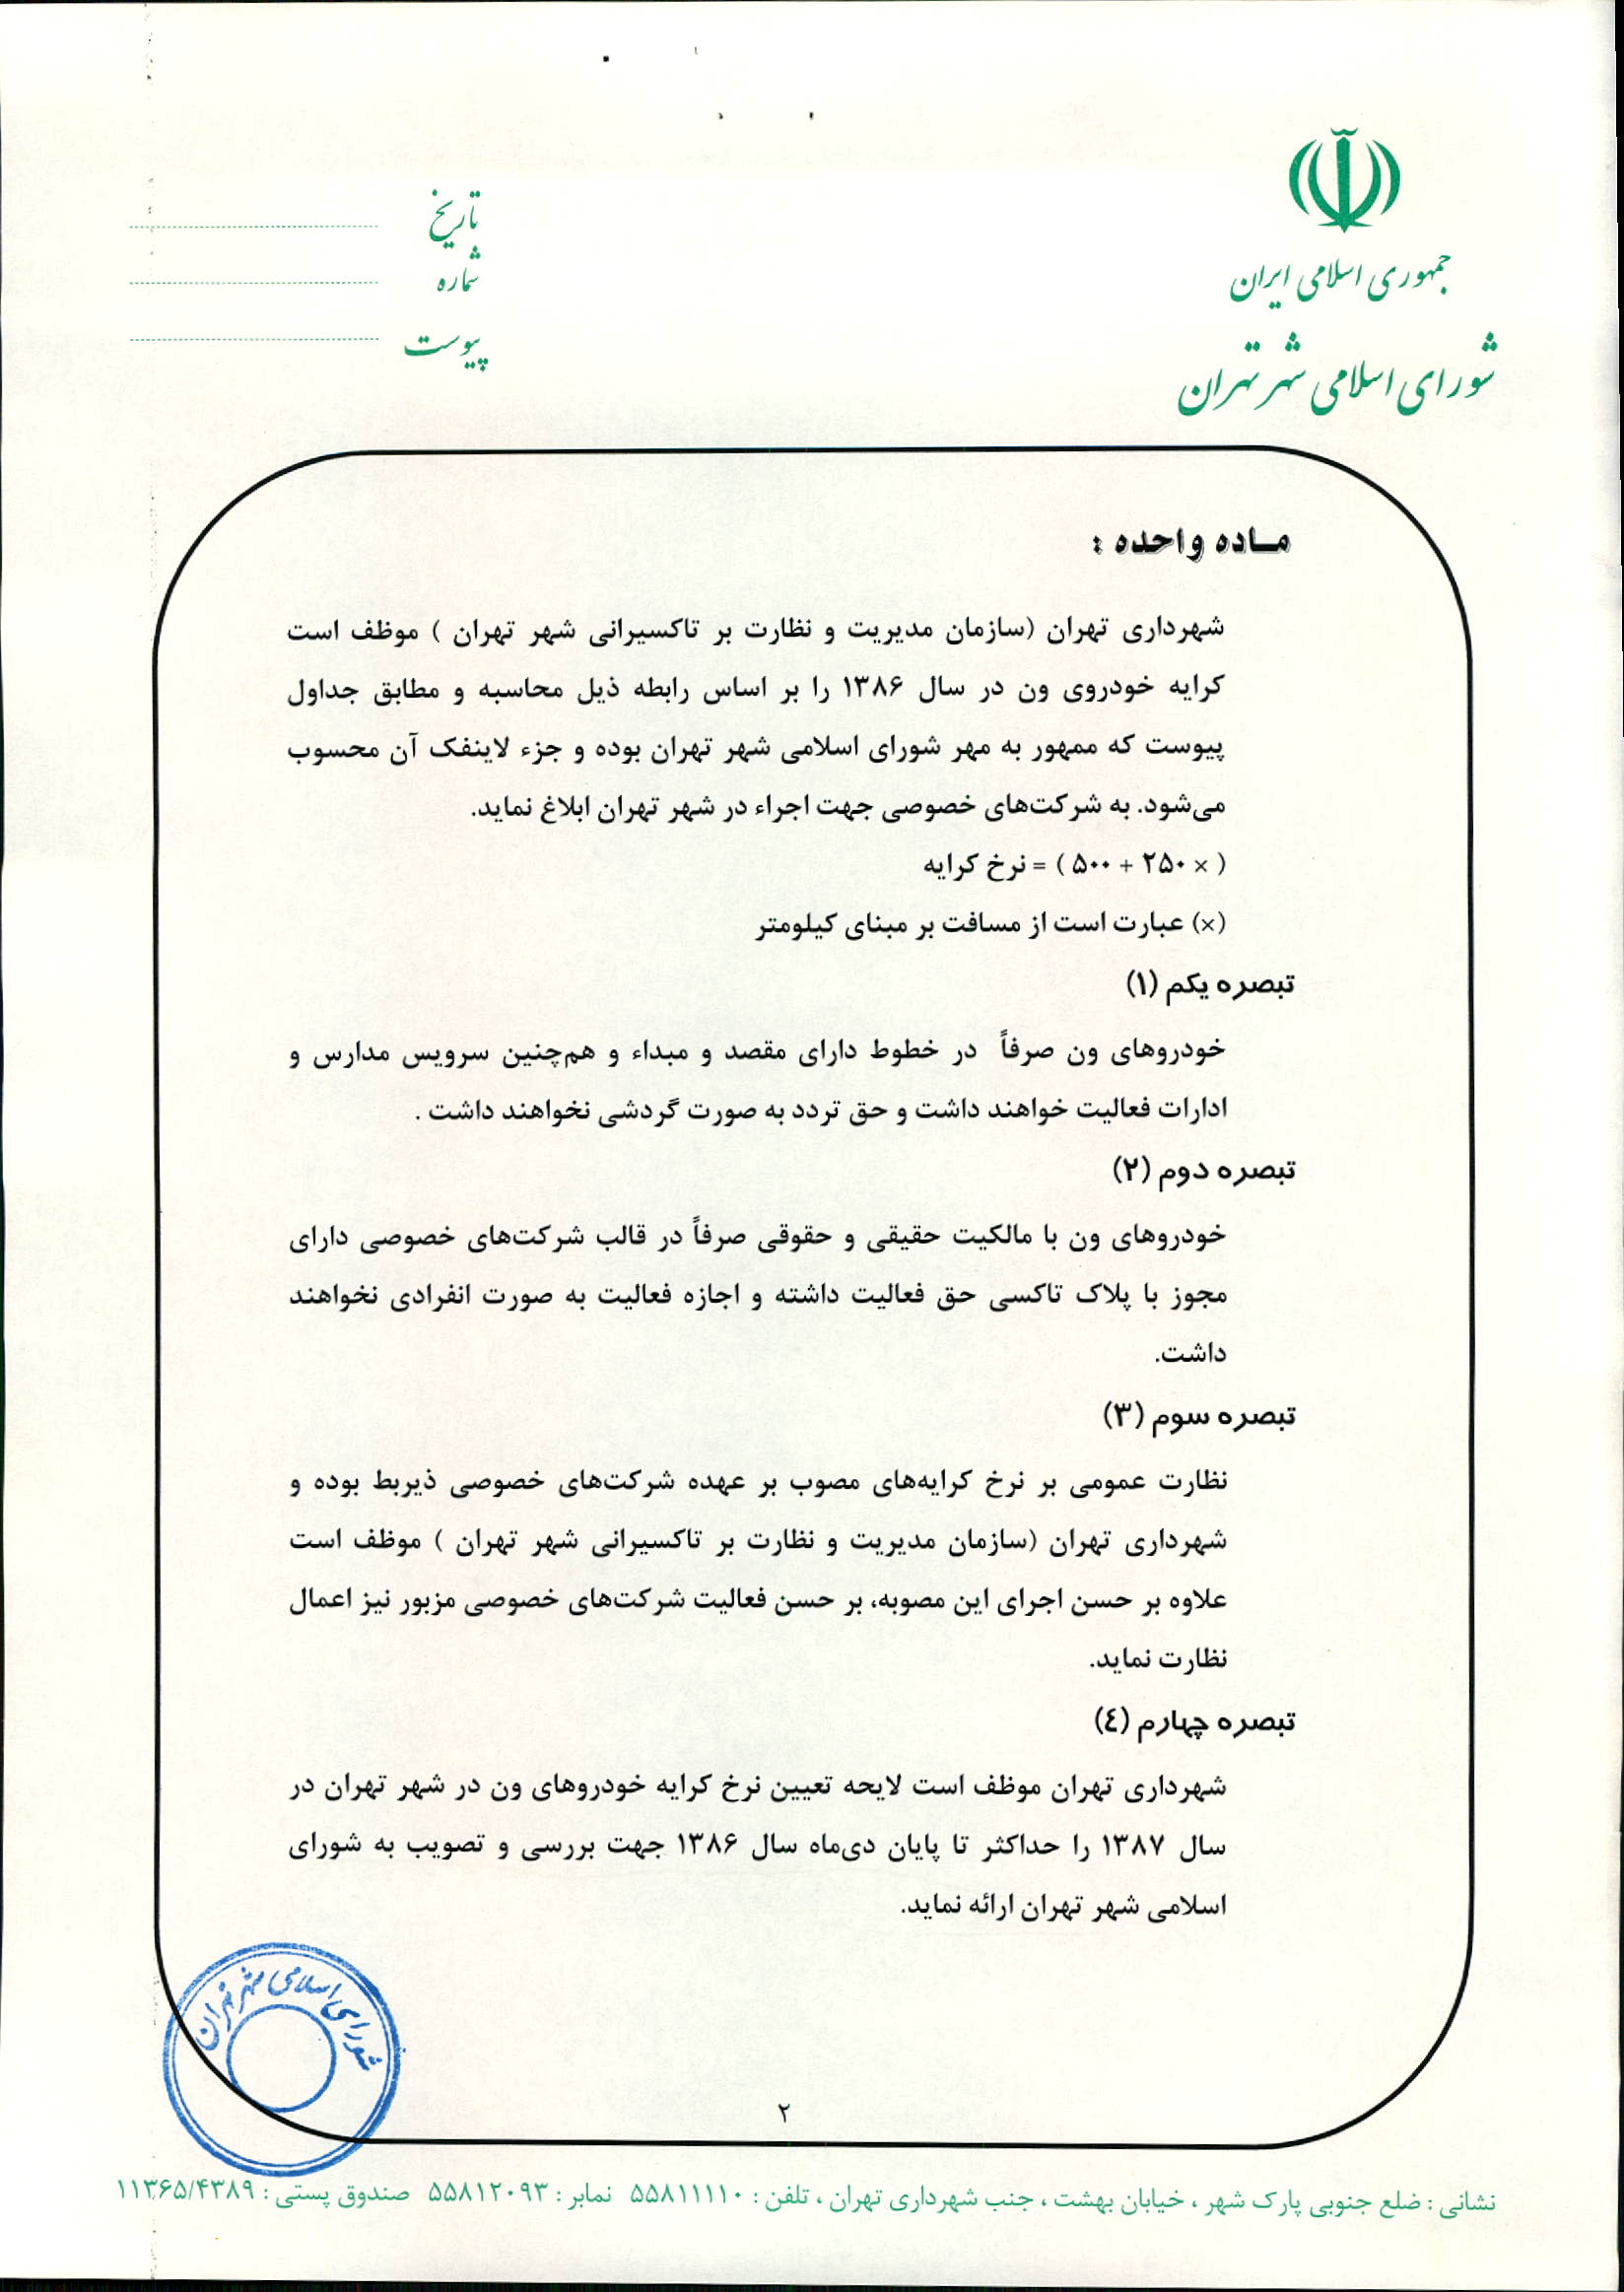 جمهوری اسلامی ایران
شورای اسلامی شهر تهران
تاریخ
شماره
پیوست
ماده واحده :
شهرداری تهران (سازمان مدیریت و نظارت بر تاکسیرانی شهر تهران ) موظف است
کرایه خودروی ون در سال ۱۳۸۶ را بر اساس رابطه ذیل محاسبه و مطابق جداول
پیوست که ممهور به مهر شورای اسلامی شهر تهران بوده و جزء لاینفک آن محسوب
می‌شود. به شرکت‌های خصوصی جهت اجراء در شهر تهران ابلاغ نماید.
( × ۲۵۰ + ۵۰۰ ) = نرخ کرایه
(×) عبارت است از مسافت بر مبنای کیلومتر
تبصره یکم (۱)
خودروهای ون صرفاً در خطوط دارای مقصد و مبداء و هم‌چنین سرویس مدارس و
ادارات فعالیت خواهند داشت و حق تردد به صورت گردشی نخواهند داشت .
تبصره دوم (۲)
خودروهای ون با مالکیت حقیقی و حقوقی صرفاً در قالب شرکت‌های خصوصی دارای
مجوز با پلاک تاکسی حق فعالیت داشته و اجازه فعالیت به صورت انفرادی نخواهند
داشت.
تبصره سوم (۳)
نظارت عمومی بر نرخ کرایه‌های مصوب بر عهده شرکت‌های خصوصی ذیربط بوده و
شهرداری تهران (سازمان مدیریت و نظارت بر تاکسیرانی شهر تهران ) موظف است
علاوه بر حسن اجرای این مصوبه، بر حسن فعالیت شرکت‌های خصوصی مزبور نیز اعمال
نظارت نماید.
تبصره چهارم (٤)
شهرداری تهران موظف است لایحه تعیین نرخ کرایه خودروهای ون در شهر تهران در
سال ۱۳۸۷ را حداکثر تا پایان دی‌ماه سال ۱۳۸۶ جهت بررسی و تصویب به شورای
اسلامی شهر تهران ارائه نماید.
شورای اسلامی شهر تهران
۲
نشانی : ضلع جنوبی پارک شهر ، خیابان بهشت ، جنب شهرداری تهران ، تلفن : ۵۵۸۱۱۱۱۰ نمابر : ۵۵۸۱۲۰۹۳ صندوق پستی : ۱۱۳۶۵/۴۳۸۹